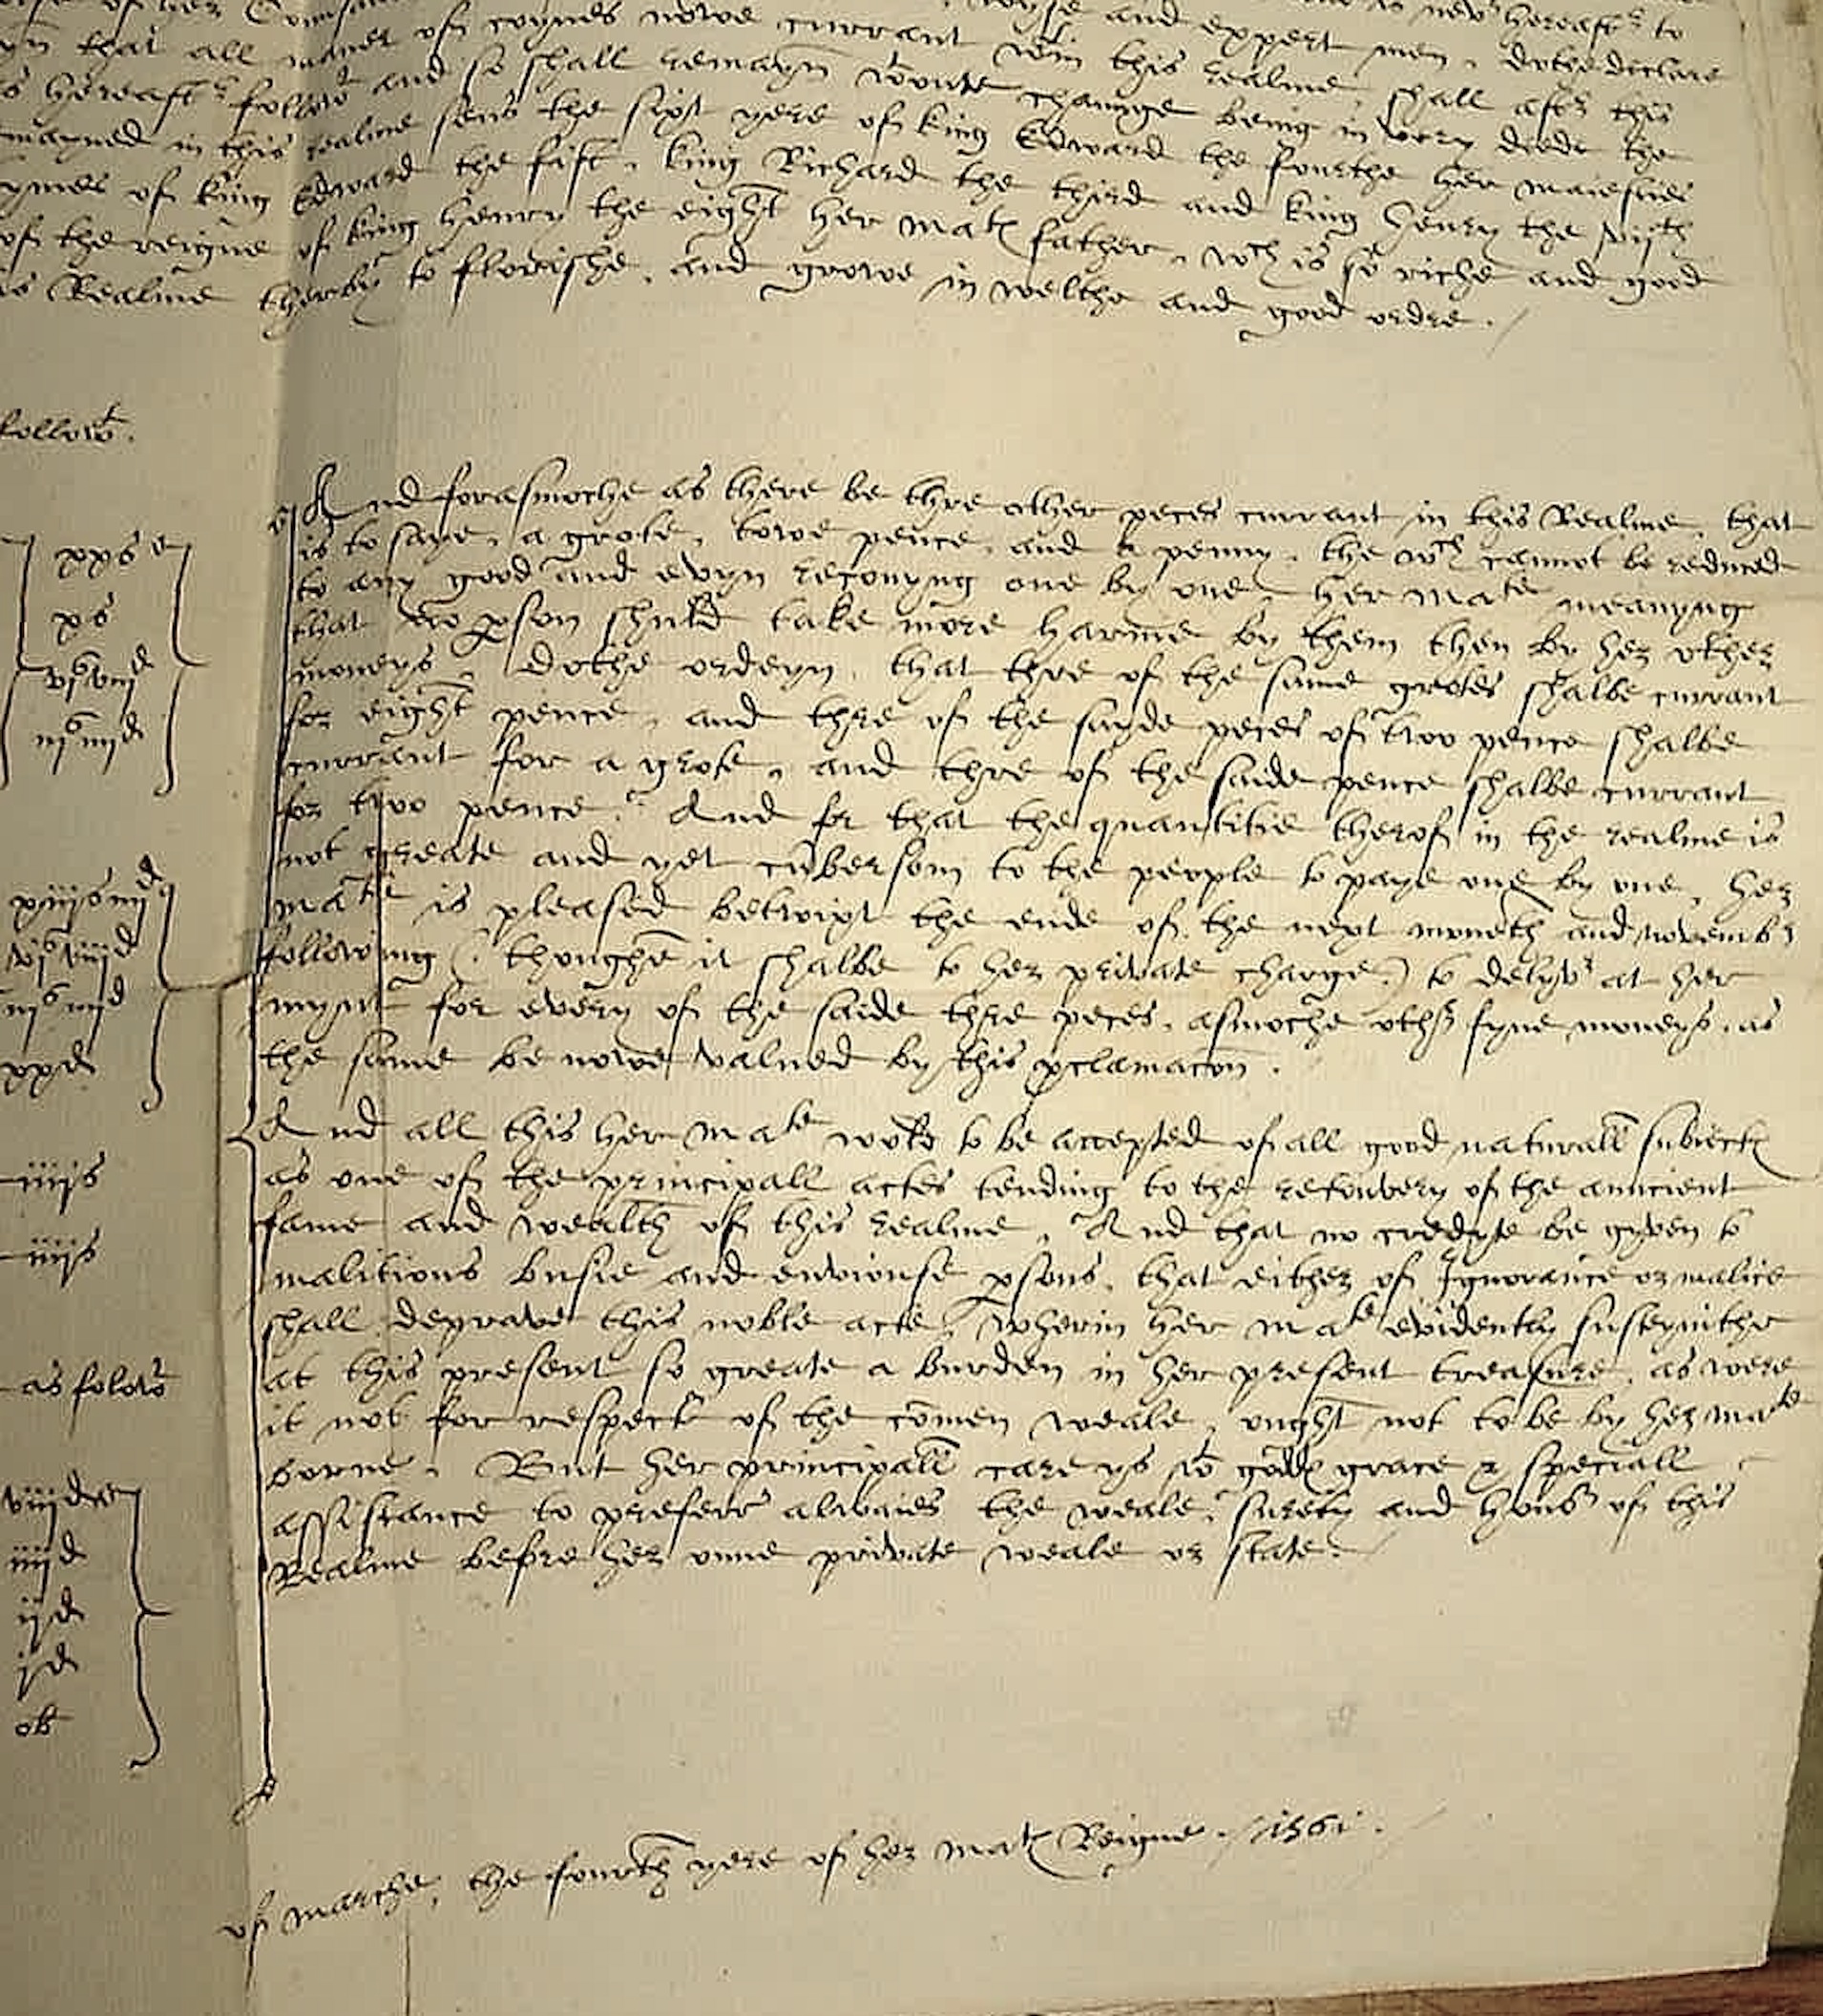 wyse and expert men, dothe declare
yn that all maner of coynes nowe currant wtin this realme, shall aftr this
s hereaftr followt and so shall remayn wtoute chaunge being in very dede the
mayned in this realme sens the sixt yere of king Edward the fourthe her maiesties
ymes of king Edward the fift, king Richard the third and king Henry the vijth
of the reigne of king Henry the eight her mats father, wch is so riche and good
is Realme therby to florishe, and growe in welthe and good ordre.
followt.
And forasmoche as there be thre other peces currant in this Realme, that
is to saye, a grote, towe pence, and a penny, the wch cannot be reduced
to any good and evyn reconyng one by one, her matie meanyng
that no pson shuld take more harme by them then by her other
moneys, dothe ordeyn, that thre of the same grotes shalbe currant
for eight pence, and thre of the sayde peces of two pence shalbe
currant for a grote, and thre of the saide pence shalbe currant
for two pence. And for that the quantitie therof in the realme is
not greate and yet cūbersom to the people to paye one by one, her
matie is pleased betwixt the ende of the next moneth and novembr
following (thoughe it shalbe to her private charge) to delyvr at her
mynt for every of the saide thre peces, asmoche othr fyne moneys, as
the same be nowe valued by this pclamacon.
And all this her matie wold to be accepted of all good naturall subiects
as one of the principall actes tending to the recouvery of the auncient
fame and wealth of this realme, And that no credyte be gyven to
malitious busie and enviouse psons, that either of Ignorance or malice
shall deprave this noble acte, wherin her matie evidently susteynithe
at this present so greate a burden in her present treasure, as were
it not for respect of the cōmen weale, ought not to be by her matie
borne. But her principall care ys wt godds grace & speciall
assistance to preferr alwaies the weale, surety and honor of this
Realme before her onne private weale or state.
xxs
xs
vjs viijd
iijs iiijd
xiijs iiijd
vjs viijd
iijs iiijd
xxd
iiijs
iiijs
as folowt
viijd
iiijd
ijd
jd
ob
of marche, the fourth yere of her mats Reigne. 1561.